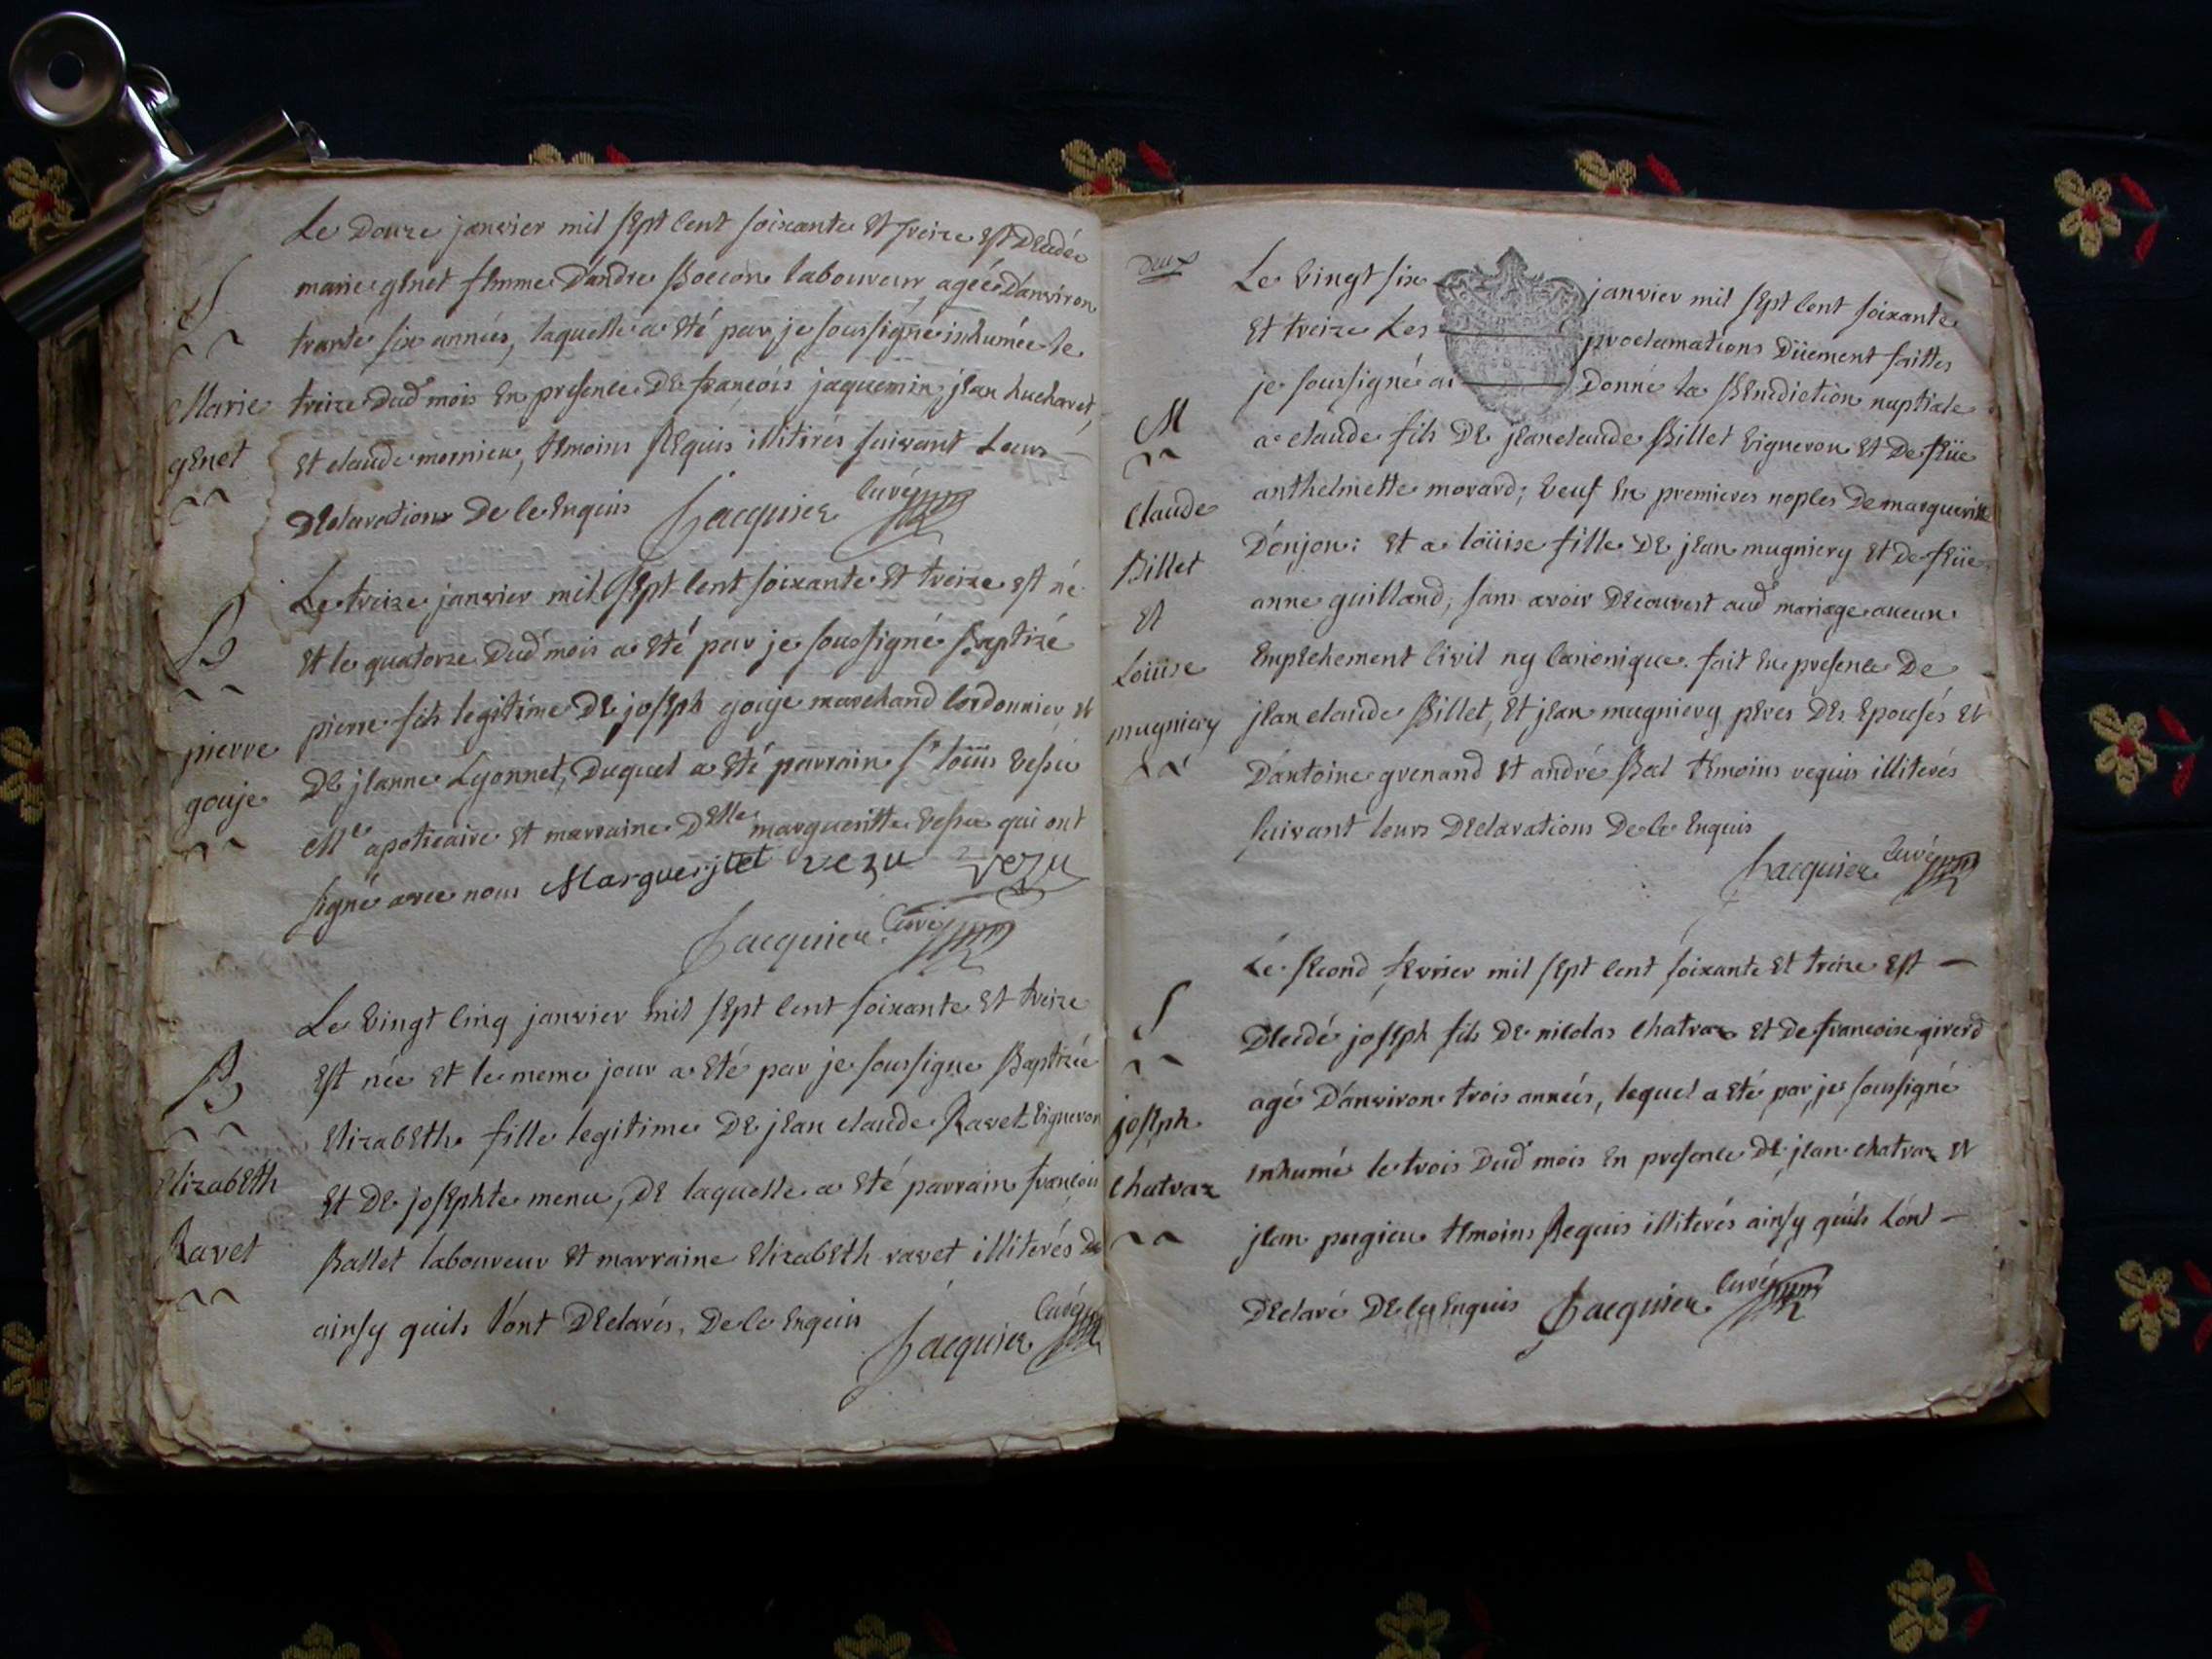 Le Douze janvier mil sept cent soixante et treize est Décédée
marie genet femme D'andre Boccon laboureur, agée D'anviron
trante six années, laquelle a eté par je soussigné inhumée le
treize Dud mois en presence De françois jaquemin, jean huchavet,
et claude mornieu, temoins Requis illiterés suivant Leurs
Declarations De ce enquis Jacquier curé
S
Marie
genet
Le treize janvier mil sept cent soixante et treize est né
et le quatorze Dud mois a eté par je soussigné Baptizé
pierre fils legitime De joseph gouje marchand cordonnier et
De jeanne Lyonnet, Duquel a eté parrain Sr loüis vesu
Me apoticaire et marraine Delle margueritte vesu qui ont
signé avec nous Marguerjtet vezu vezu
Jacquier curé
B
pierre
gouje
Le vingt cinq janvier mil sept cent soixante et treize
est née et le meme jour a eté par je soussigne Baptizée
elizabeth fille legitime De jean claude Ravet vigneron
et De josephte menu, De laquelle a eté parrain françois
Ballet laboureur et marraine elizabeth ravet illiterés
ainsy quils l'ont Déclarés, De ce enquis
Jacquier curé
B
elizabeth
Ravet
Deux
Le vingt six janvier mil sept cent soixante
et treize Les proclamations Düement faittes
je soussigné ai Donné la Benediction nuptiale
a claude fils De jean claude Billet vigneron et De feüe
anthelmette morard; veuf en premieres noples De margueritte
D'onjon: et a loüise fille De jean mugniery et De feüe
anne guilland; sans avoir Découvert aud mariage aucun
empechement civil ny canonique. fait en presence De
jean claude Billet, et jean mugniery peres Des epousés et
D'antoine grenand et andré Bal temoins requis illiterés
suivant leurs Declarations De ce enquis
Jacquier curé
M
claude
Billet
et
Loüise
mugniery
Le second fevrier mil sept cent soixante et treize est
Décédé joseph fils De nicolas chatraz et De françoise girerd
agé D'anviron trois années, lequel a eté par je soussigné
inhumé le trois Dud mois en presence De jean chatraz et
jean pugieu temoins Requis illiterés ainsy quils l'ont
Declaré De ce enquis Jacquier curé
S
joseph
chatraz